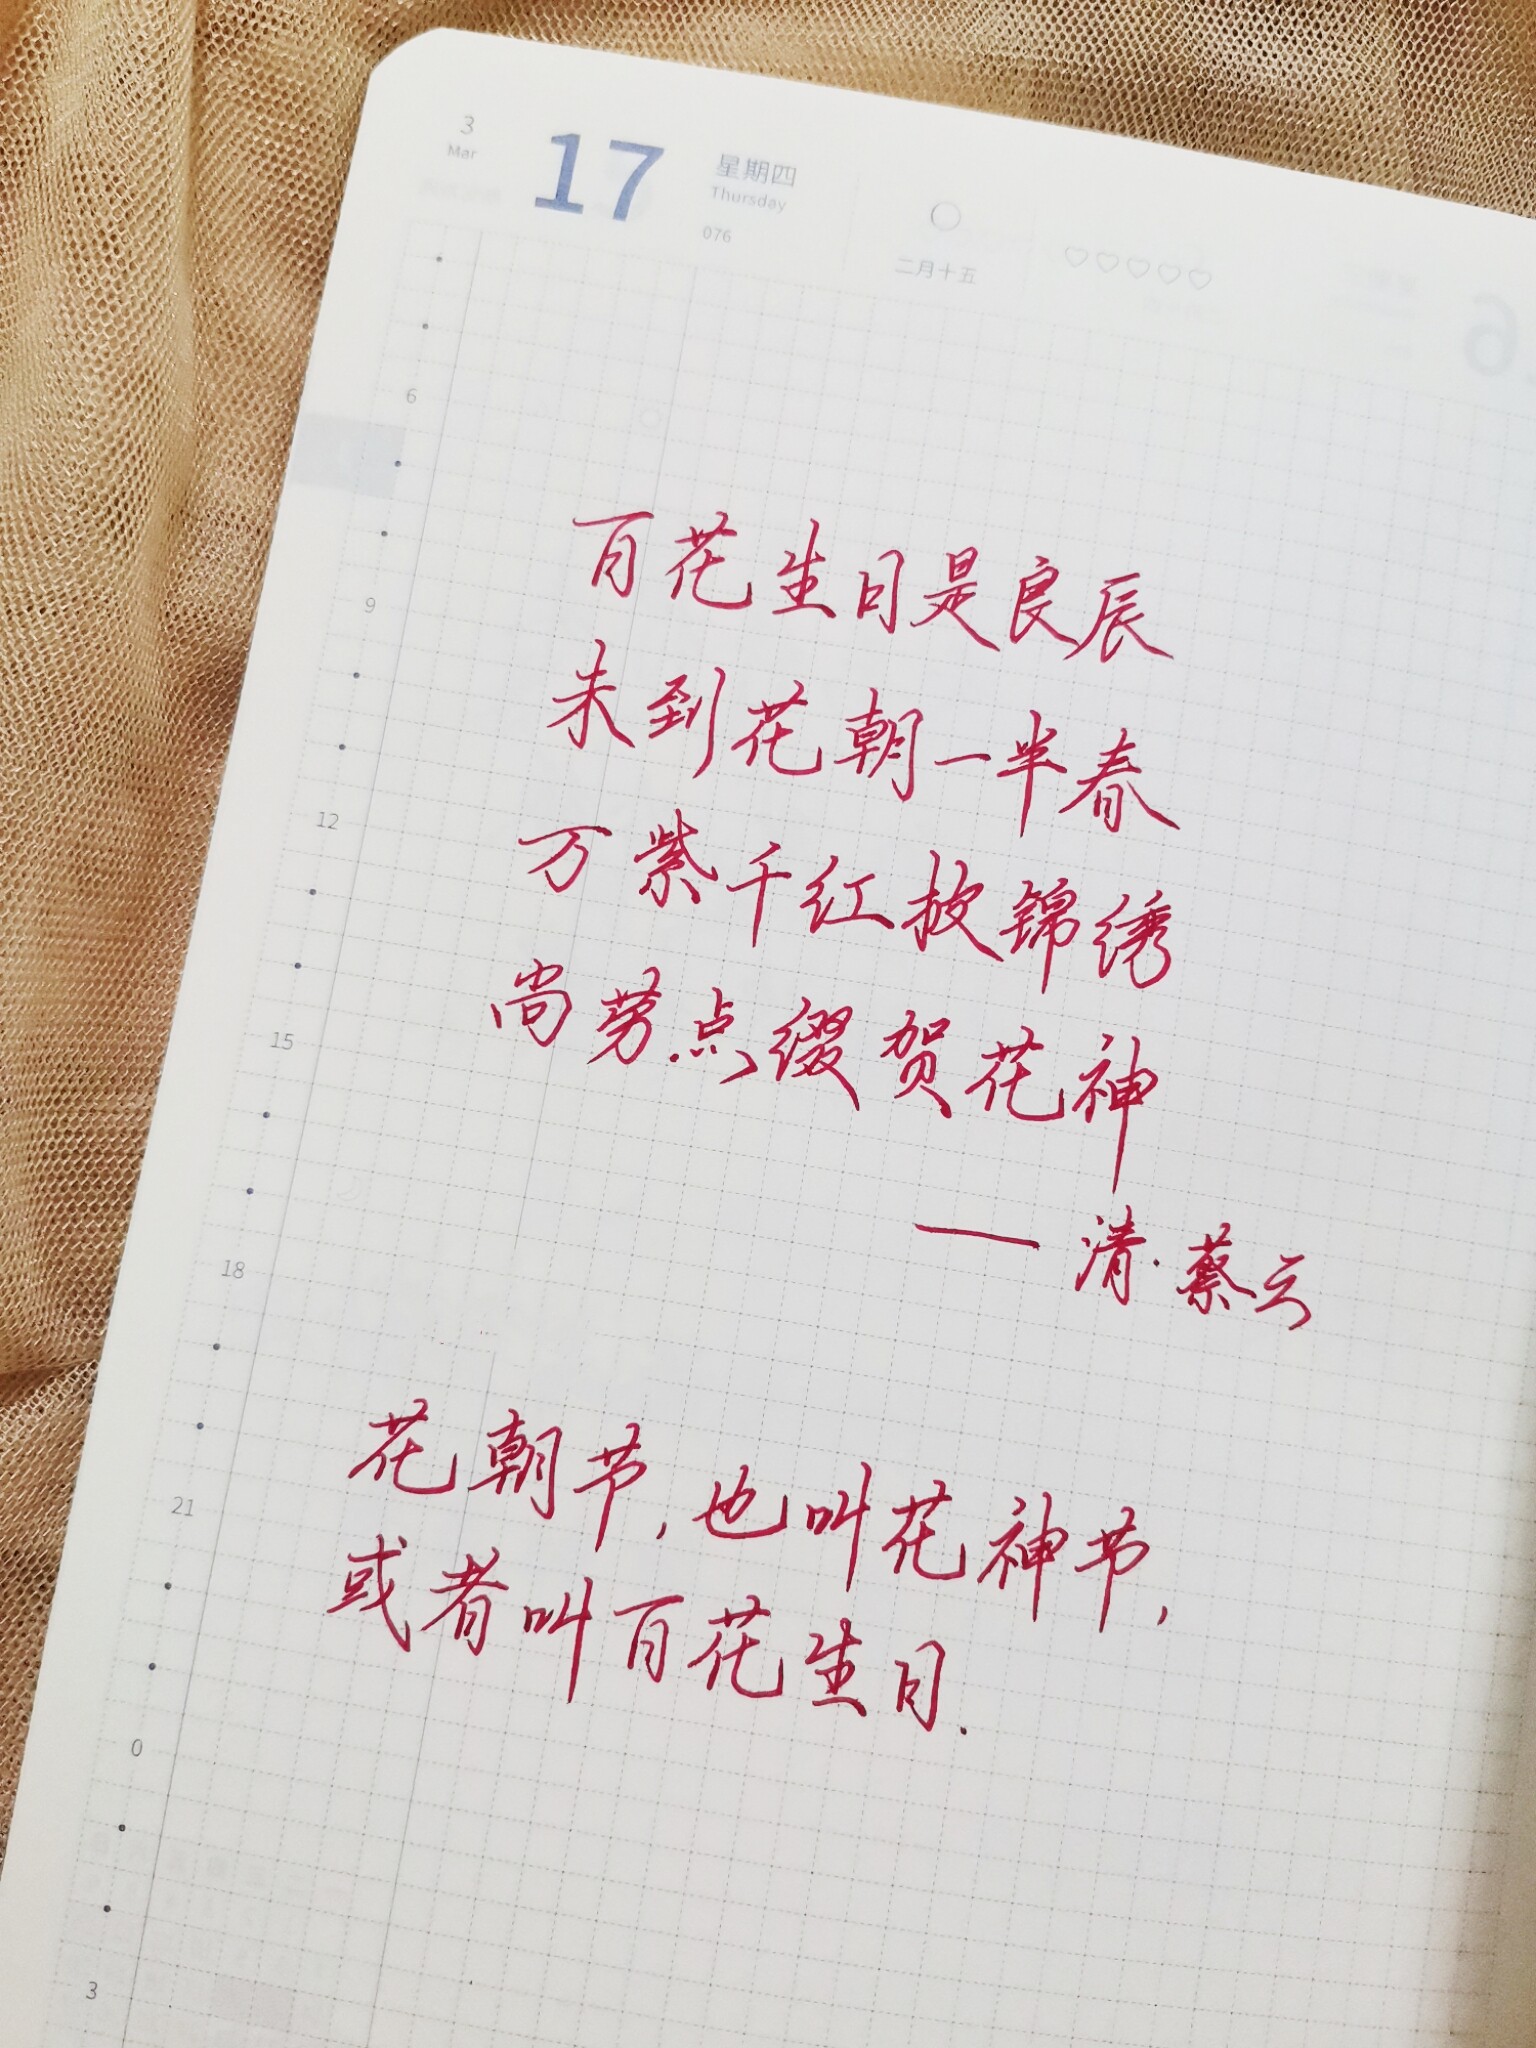 3
Mar
17
星期四
Thursday
076
二月十五
6
9
12
15
18
21
0
3
百花生日是良辰
未到花朝一半春
万紫千红披锦绣
尚劳点缀贺花神
——清·蔡云
花朝节，也叫花神节，
或者叫百花生日.